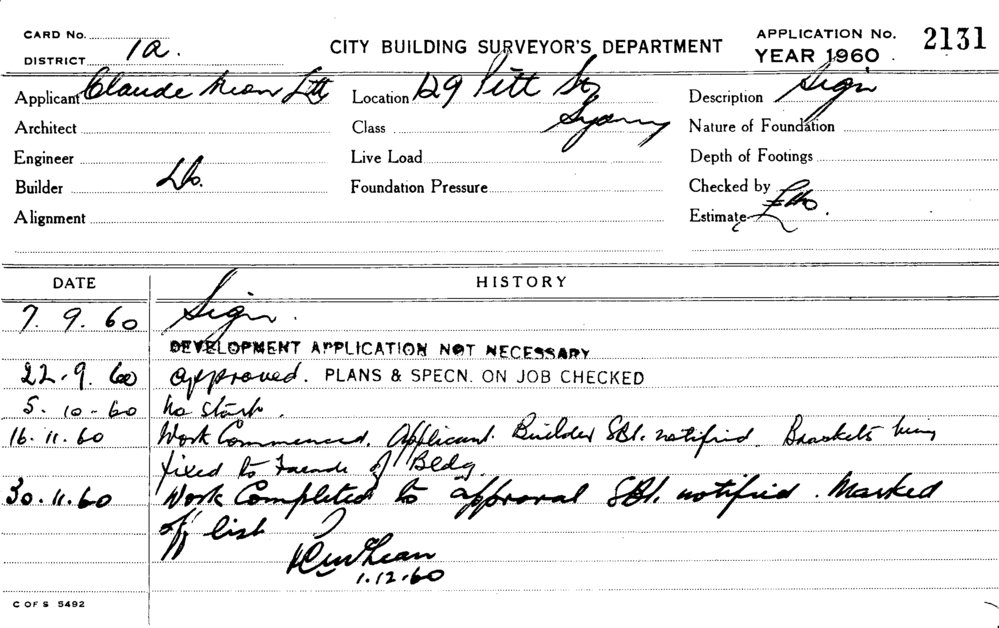 CARD No.
DISTRICT 1a.
CITY BUILDING SURVEYOR'S DEPARTMENT
APPLICATION No. 2131
YEAR 1960
Applicant Claude Neon Ltd
Location 129 Pitt St,
Sydney
Description Sign
Architect
Class
Nature of Foundation
Engineer
Live Load
Depth of Footings
Builder Do.
Foundation Pressure
Checked by
Alignment
Estimate
DATE
HISTORY
7. 9. 60 Sign.
DEVELOPMENT APPLICATION NOT NECESSARY
22. 9. 60 approved. PLANS & SPECN. ON JOB CHECKED
5. 10 - 60 No start.
16. 11. 60 Work Commenced. Applicant. Builder notified. Brackets being
fixed to Facade of Bldg.
30. 11. 60 Work Completed to approval notified. Marked
off list
1.12.60
C OF S 5492